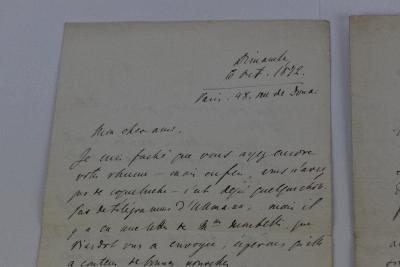 Dimanche
6 Oct. 1872.
Paris. 48, rue de Douai
Mon cher ami.
Je suis fâché que vous ayez encore
votre rhume — mais enfin, vous n'avez
pas de coqueluche — c'est déjà quelque chose
Pas de télégramme d'Ullmann, mais il
y a eu une lettre de Mme que
Viardot vous a envoyée, espérons qu'elle
a contenu de bonnes nouvelles